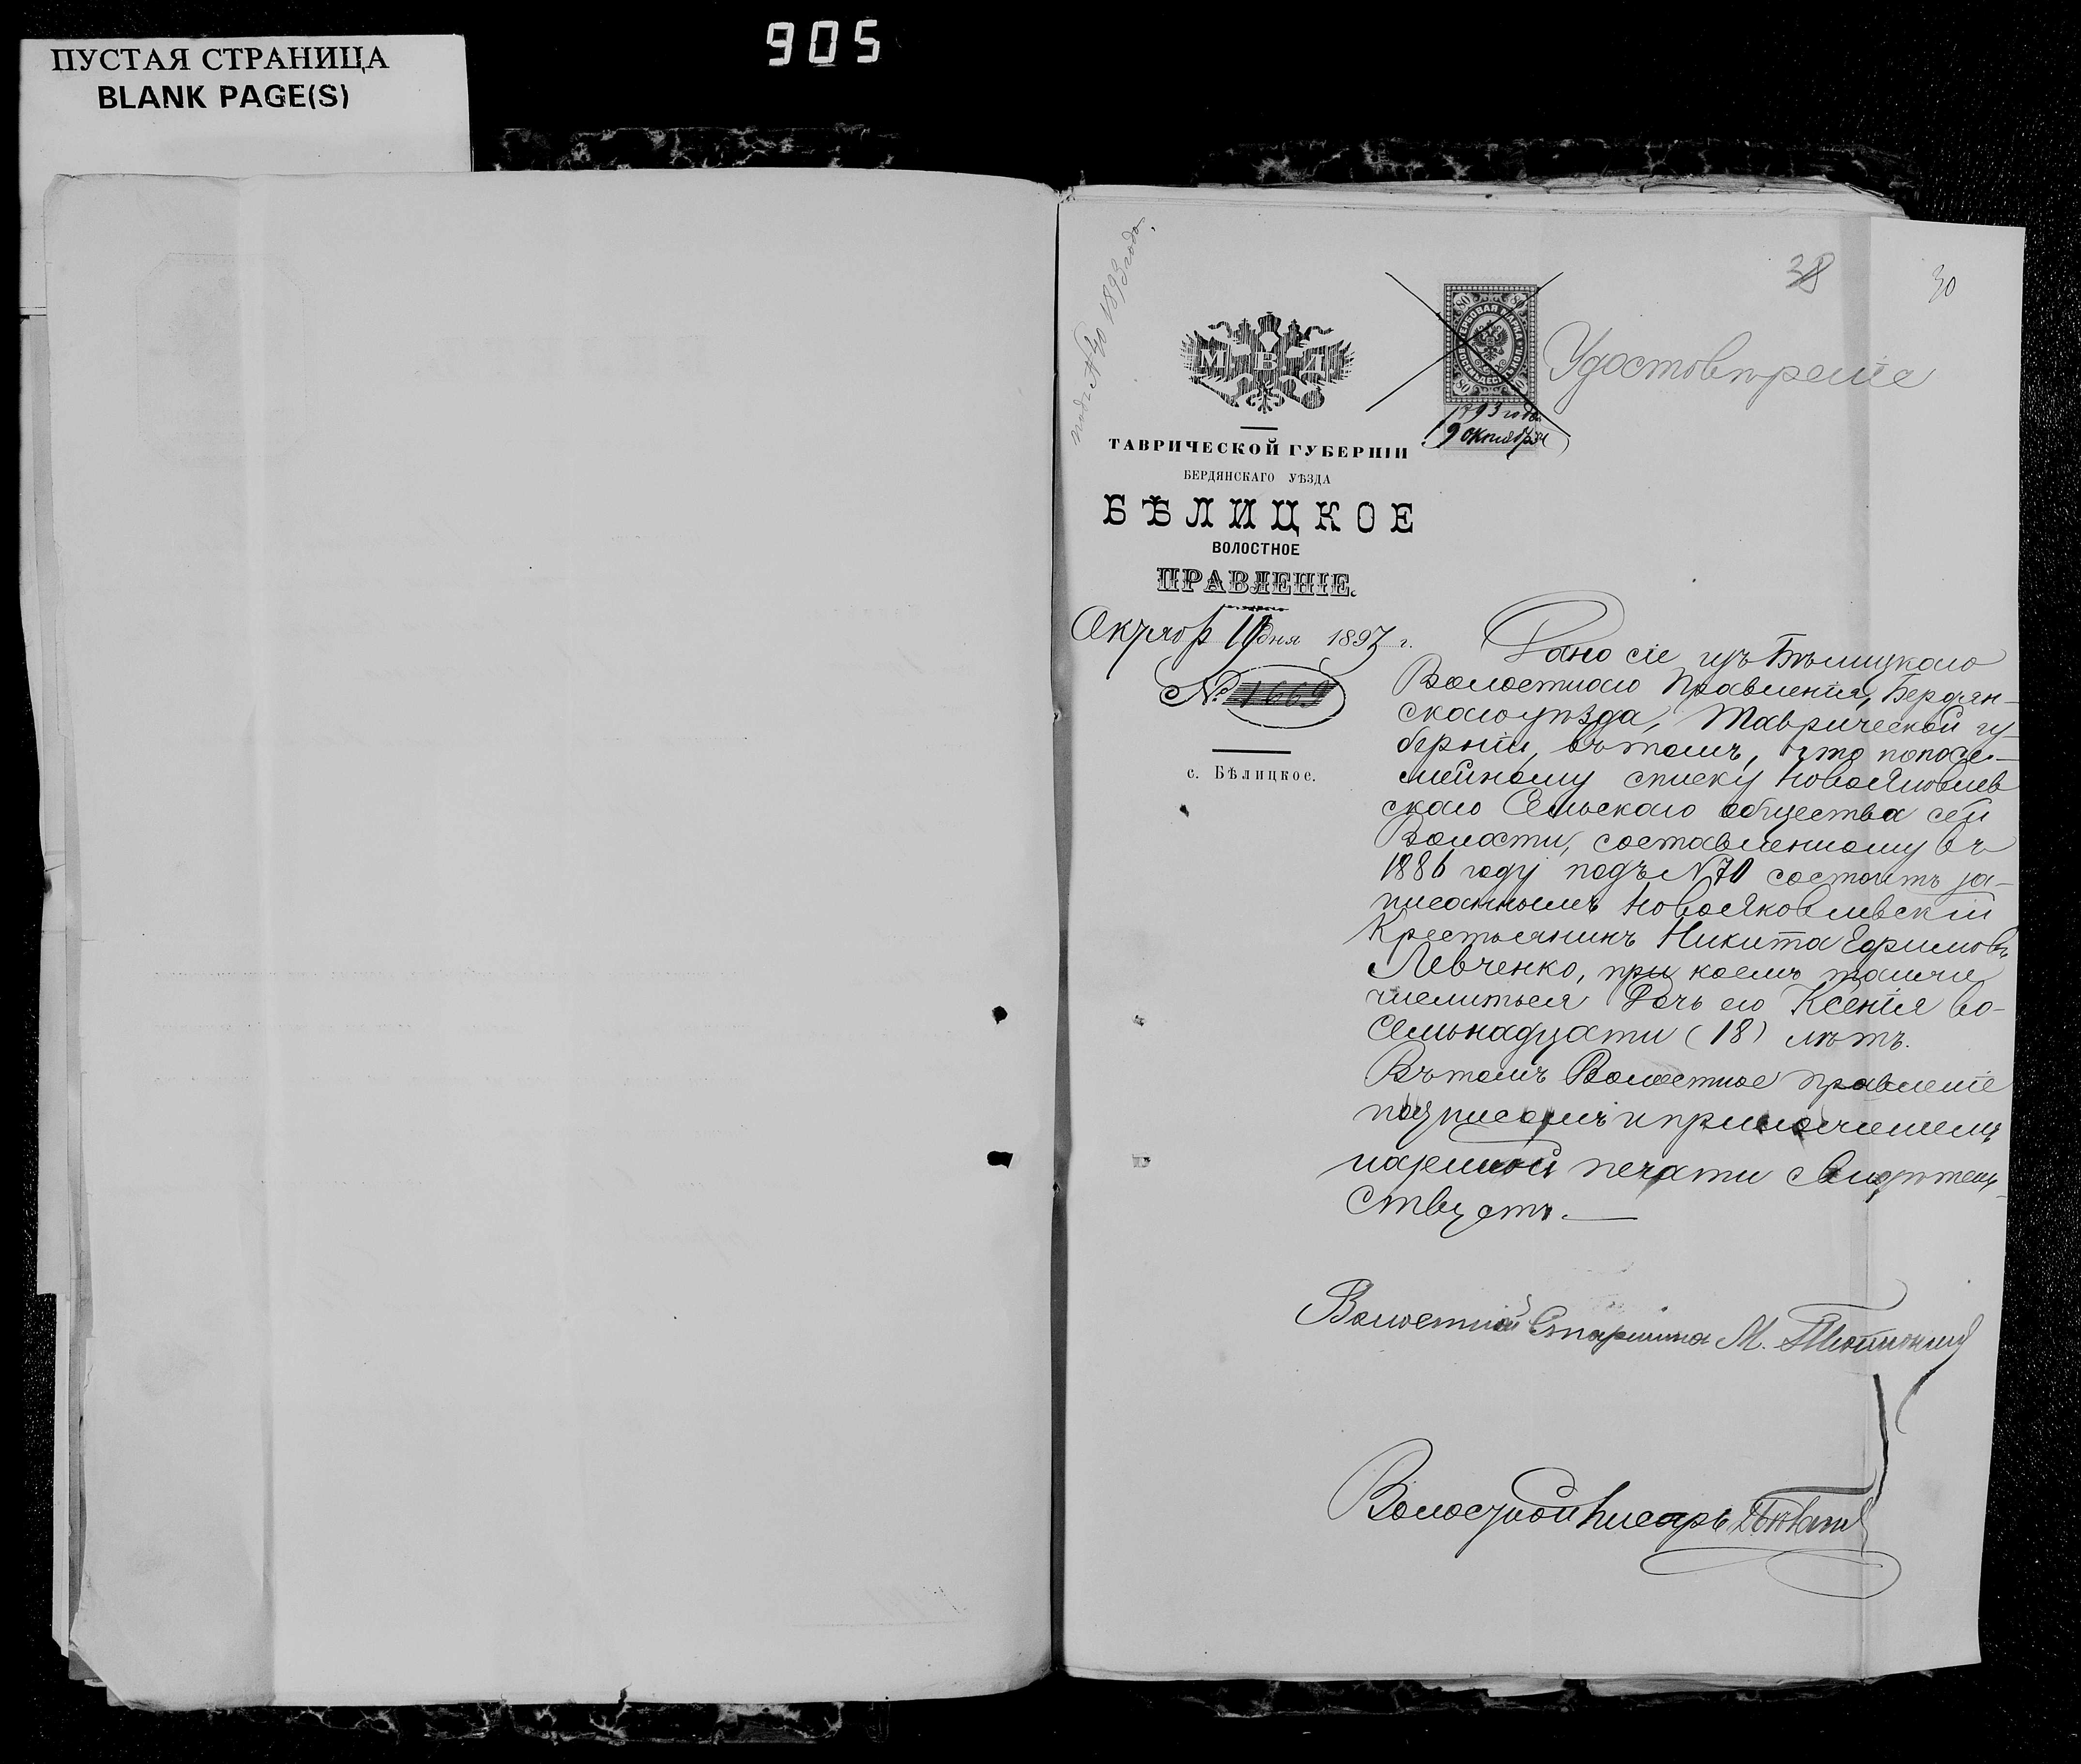 905
ПУСТАЯ СТРАНИЦА
BLANK PAGE(S)
38
30
1893 года
М В Д
80 80
ГЕРБОВАЯ МАРКА
80
1893 года
9 октября
Удостовѣреніе
ТАВРИЧЕСКОЙ ГУБЕРНІИ
БЕРДЯНСКАГО УѢЗДА
БѢЛИЦКОЕ
ВОЛОСТНОЕ
ПРАВЛЕНІЕ.
дня 1893 г.
№ 1669
с. Бѣлицкое.
Дано сіе изъ Бѣлицкаго
Волостнаго Правленія, Бердян-
скаго уѣзда, Таврической гу-
берніи, въ томъ, что по посе-
мейному списку Новояковлев
скаго Сельскаго общества сей
Волости, составленному въ
1886 году подъ №70 состоитъ за-
писаннымъ Новояковлевскій
Крестьянинъ Никита Ефимовъ
Левченко, при коемъ также
числиться Дочь его Ксенія во-
семьнадцати (18) лѣтъ.
Въ томъ Волостное правленіе
подписомъ и приложеніемъ
казенной печати свидѣтель-
ствуетъ.—
Волостной Старшина М.
Волостной Писарь